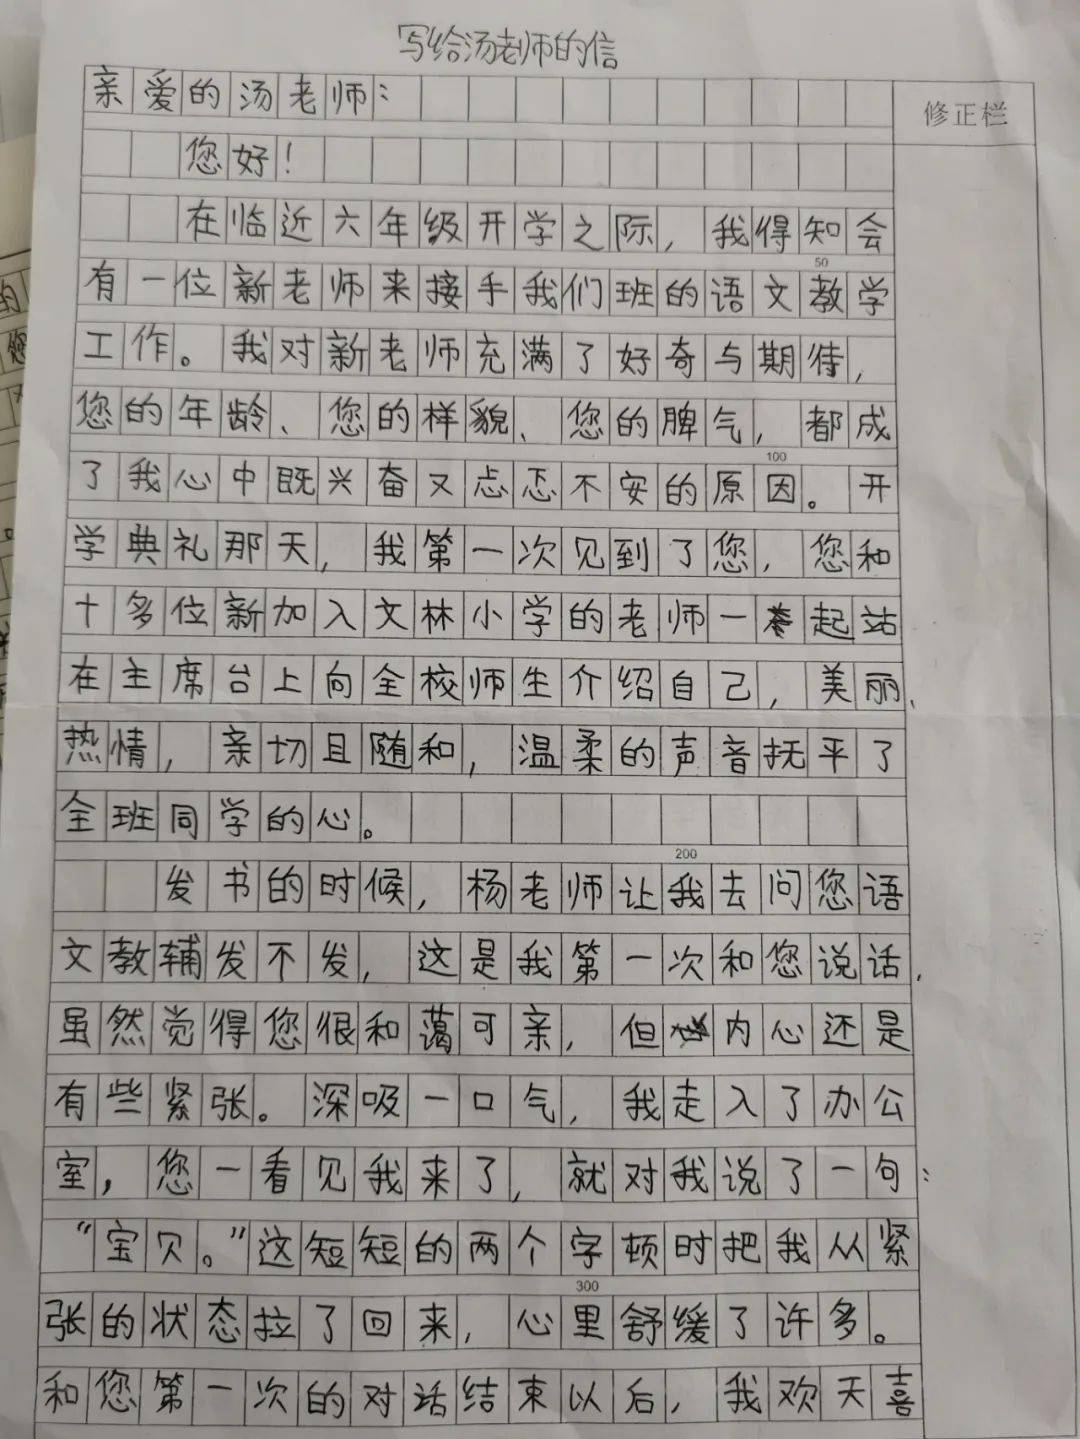 写给汤老师的信
亲爱的汤老师：
修正栏
您好！
在临近六年级开学之际，我得知会
50
有一位新老师来接手我们班的语文教学
工作。我对新老师充满了好奇与期待，
您的年龄、您的样貌、您的脾气，都成
100
了我心中既兴奋又忐忑不安的原因。开
学典礼那天，我第一次见到了您，您和
十多位新加入文林小学的老师一起站
在主席台上向全校师生介绍自己，美丽、
热情，亲切且随和，温柔的声音抚平了
全班同学的心。
200
发书的时候，杨老师让我去问您语
文教辅发不发，这是我第一次和您说话，
虽然觉得您很和蔼可亲，但内心还是
有些紧张。深吸一口气，我走入了办公
室，您一看见我来了，就对我说了一句：
“宝贝。”这短短的两个字顿时把我从紧
300
张的状态拉了回来，心里舒缓了许多。
和您第一次的对话结束以后，我欢天喜